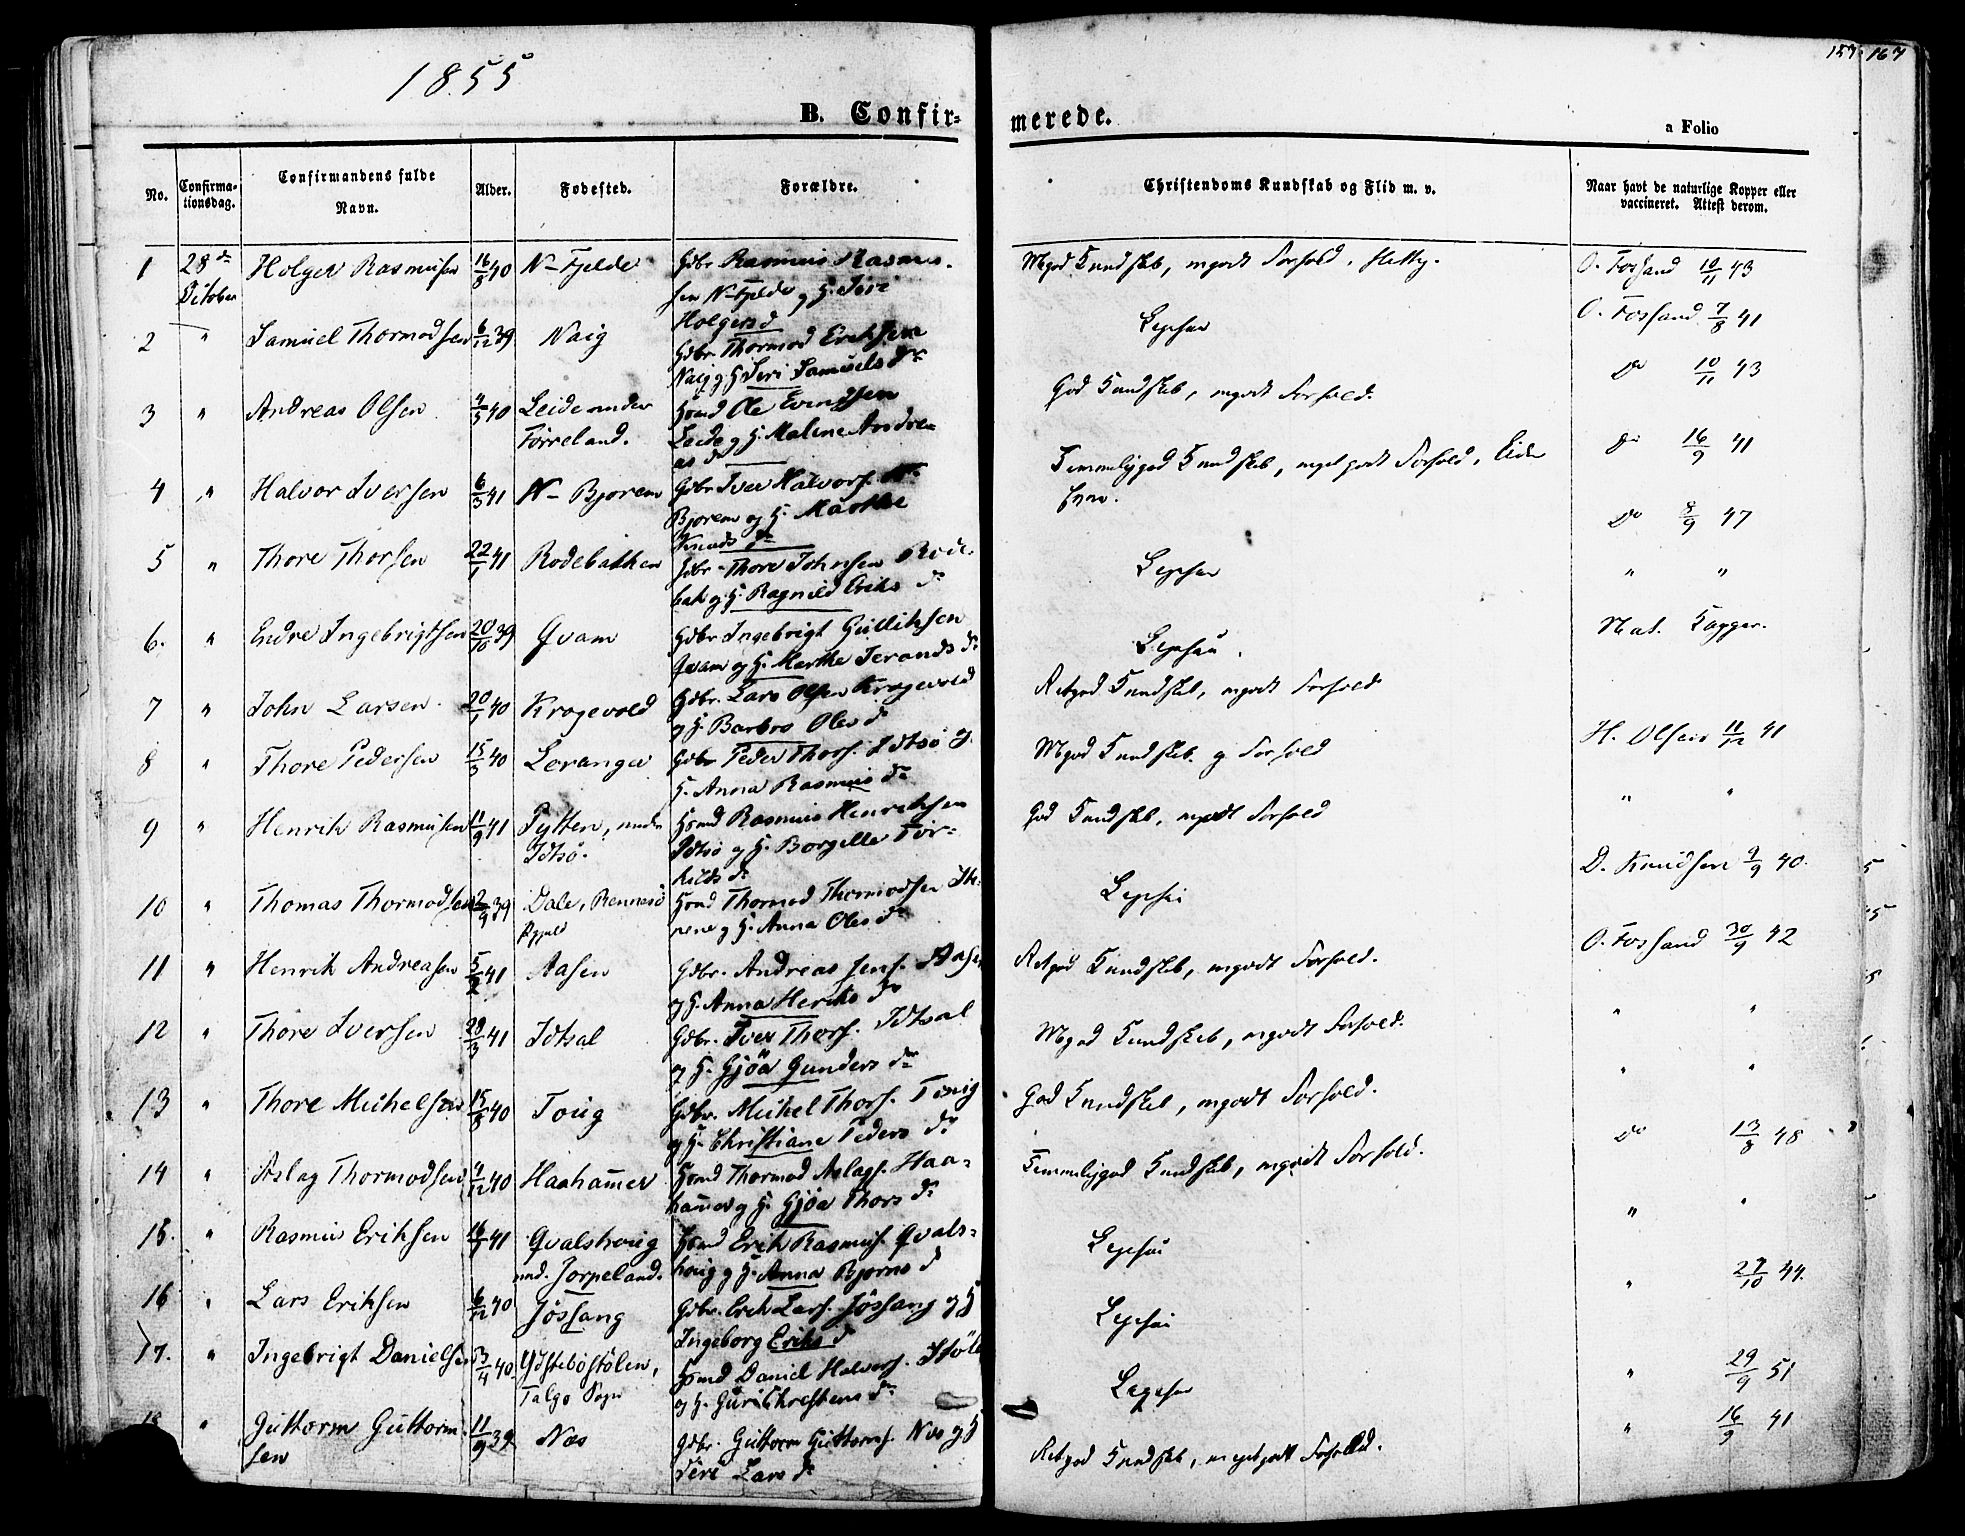 1855
157 167
B. Confir-
merede.
a Folio
No.
Confirma-
tionsdag.
Confirmandens fulde
Navn.
Alder.
Fødested.
Forældre.
Christendoms Kundskab og Flid m. v.
Naar havt de naturlige Kopper eller
vaccineret. Attest derom.
1 28de Holger Rasmussen 16/8 40 N-Fjelde Gdbr. Rasmus Rasmus-
October sen N-Fjelde og H. Siri
Holgersd
Mgod Kundskab, mgodt Forhold. O. Fossand 10/11 43
2 " Samuel Thormodsen 6/12 39 Naig Gdbr. Thormod Eriksen
Naig og H Seri Samuels dr
Ligesaa O. Fossand 7/8 41
3 " Andreas Olsen 4/5 40 Leide under Hsmd Ole Evindsen
Førreland. Leide og H. Malene Andre-
as dr
God Kundskab, mgodt Forhold. Do 10/11 43
4 " Halvor Iversen 6/3 41 N- Bjorem Gdbr Iver Halvors. N-
Bjorem og H. Marthe
Knuds dr
Temmeliggod Kundskab, megetgodt Forhold, Do 16/9 41
5 " Thore Thorsen 22/1 41 Rodebakken Gdbr. Thore Johnsen Rode-
bak og H. Ragnild Eriks d
Ligesaa Do 8/9 47
6. " Endre Ingebrigtsen 20/10 39 Qvam Gdbr Ingebrigt Gulliksen
Qvam og H. Marthe Terands dr
Ligesaa " "
7 " John Larsen. 20/1 40 Krogevold Gdbr. Lars Olsen Krogevold
og H. Barbro Oles d
Retgod Kundskab, mgodt Forhold Nat. Kopper.
8 " Thore Pedersen 15/3 40 Leranger Gdbr Peder Thors. Idtsø og
H. Anna Rasmus dr
Mgod Kundskab. og Forhold H. Olsen 11/12 41
9 " Henrik Rasmussen 11/9 41 Pytten, under Hsmd Rasmus Henriksen
Idtsø. Idtsø og H. Borgille Tor-
kilds dr
God Kundskab, mgodt Forhold " "
10 " Thomas Thormodsen 2/9 39 Dale, Rennesø Hsmd Thormod Thormodsen
og H. Anna Oles dr
Ligesaa D. Knudsen 9/9 40.
11 " Henrik Andreasen 5/2 41 Aasen Gdbr. Andreas Jens. Aasen
og H. Anna Henriks dr
Retgod Kundskab, mgodt Forhold. O. Fossand 30/9 42
12 " Thore Iversen 28/3 41 Idtsal Gdbr. Iver Thors. Idtsal
og H. Gjøa Gunders dr
Mgod Kundskab, mgodt Forhold. " "
13 " Thore Mikelsen 15/8 40 Toug Gdbr. Mikel Thors. Toug
og H. Christiane Peders dr
God Kundskab, mgodt Forhold. " "
14 " Aslag Thormodsen 4/12 40 Haahamer Hsmd Thormod Aslags. Haa-
hamer og H. Gjøa Thors dr
Temmeliggod Kundskab, mgodt Forhold. Do 13/8 48
15. " Rasmus Eriksen 16/7 41 Qvalshoug Hsmd Erik Rasmus. Qvals-
und. Jorpeland. houg og H. Anna Bjorns d
Ligesaa " "
16 " Lars Eriksen 6/12 40 Jøssang Gdbr. Erik Lars. Jøssang og H
Ingeborg Eriks d
Ligesaa " 27/10 44.
17. " Ingebrigt Danielsen 13/4 40. Ydstebøstølen, Hsmd Daniel Halvors. Støl
Talgø Sogn og H. Guri Christens dr
Ligesaa " 29/9 51
18 " Guttorm Guttorm- 11/9 39 Næs Gdbr. Guttorm Guttorms. Næs og H
sen Seri Lars dr
Retgod Kundskab, megetgodt Forhold. " 16/9 41